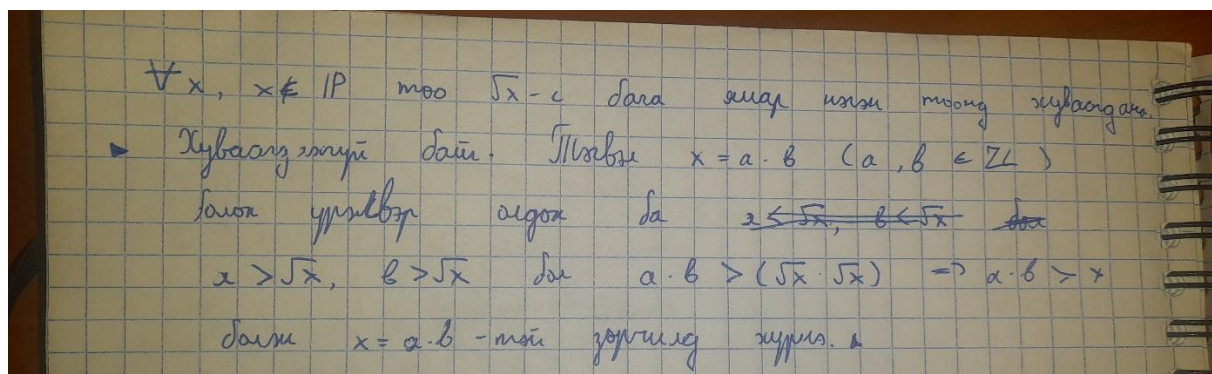 ∀x, x∉ℙ тоо √x-с бага ямар нэгэн тоонд хуваагдана.
▸ Хуваагдахгүй байг. Тэгвэл x = a·b (a, b ∈ ℤ)
болох үржвэр олдох ба a<√x, b<√x бол
a > √x, b > √x бол a·b > (√x·√x) ⇒ a·b > x
болж x = a·b -тэй зөрчилд хүрлэ.